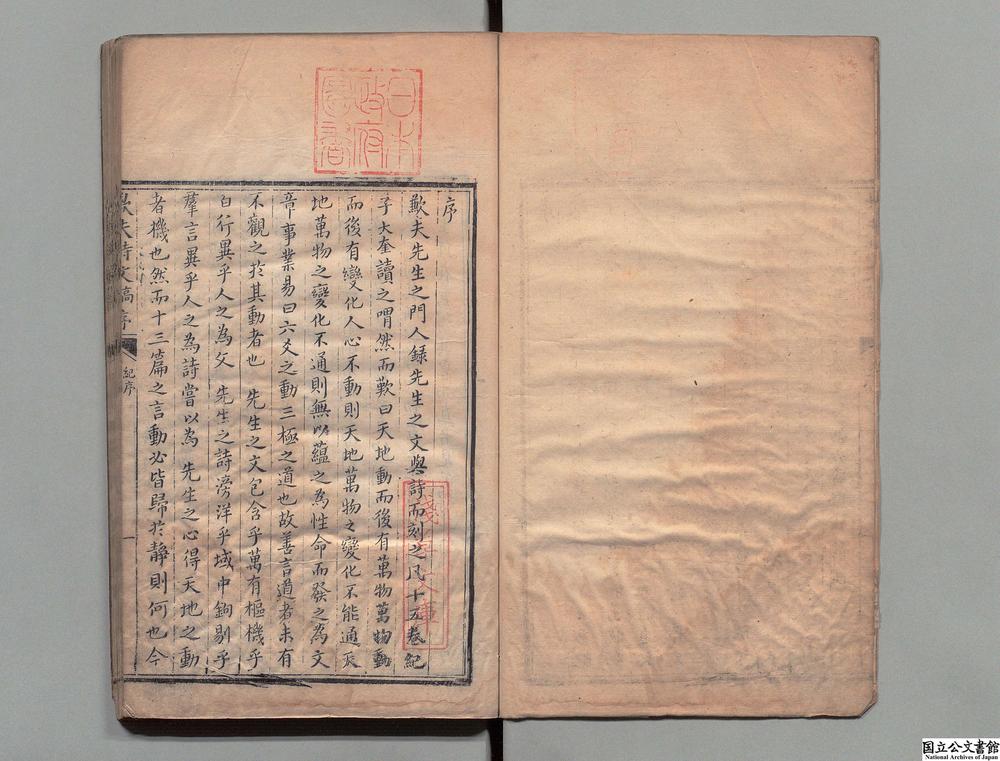 序
歎夫先生之門人録先生之文與詩而刻之凡十五卷紀
子大奎讀之喟然而歎曰天地動而後有萬物萬物動
而後有變化人心不動則天地萬物之變化不能通天
地萬物之變化不通則無以蘊之為性命而發之為文
章事業易曰六爻之動三極之道也故善言道者未有
不觀之於其動者也 先生之文包含乎萬有樞機乎
百行異乎人之為文 先生之詩滂洋乎域中鉤剔乎
羣言異乎人之為詩嘗以為 先生之心得天地之動
者機也然而十三篇之言動必皆歸於静則何也今
歎夫詩文稿序
紀序
一
日本
政府
圖書
淺草文庫
国立公文書館
National Archives of Japan